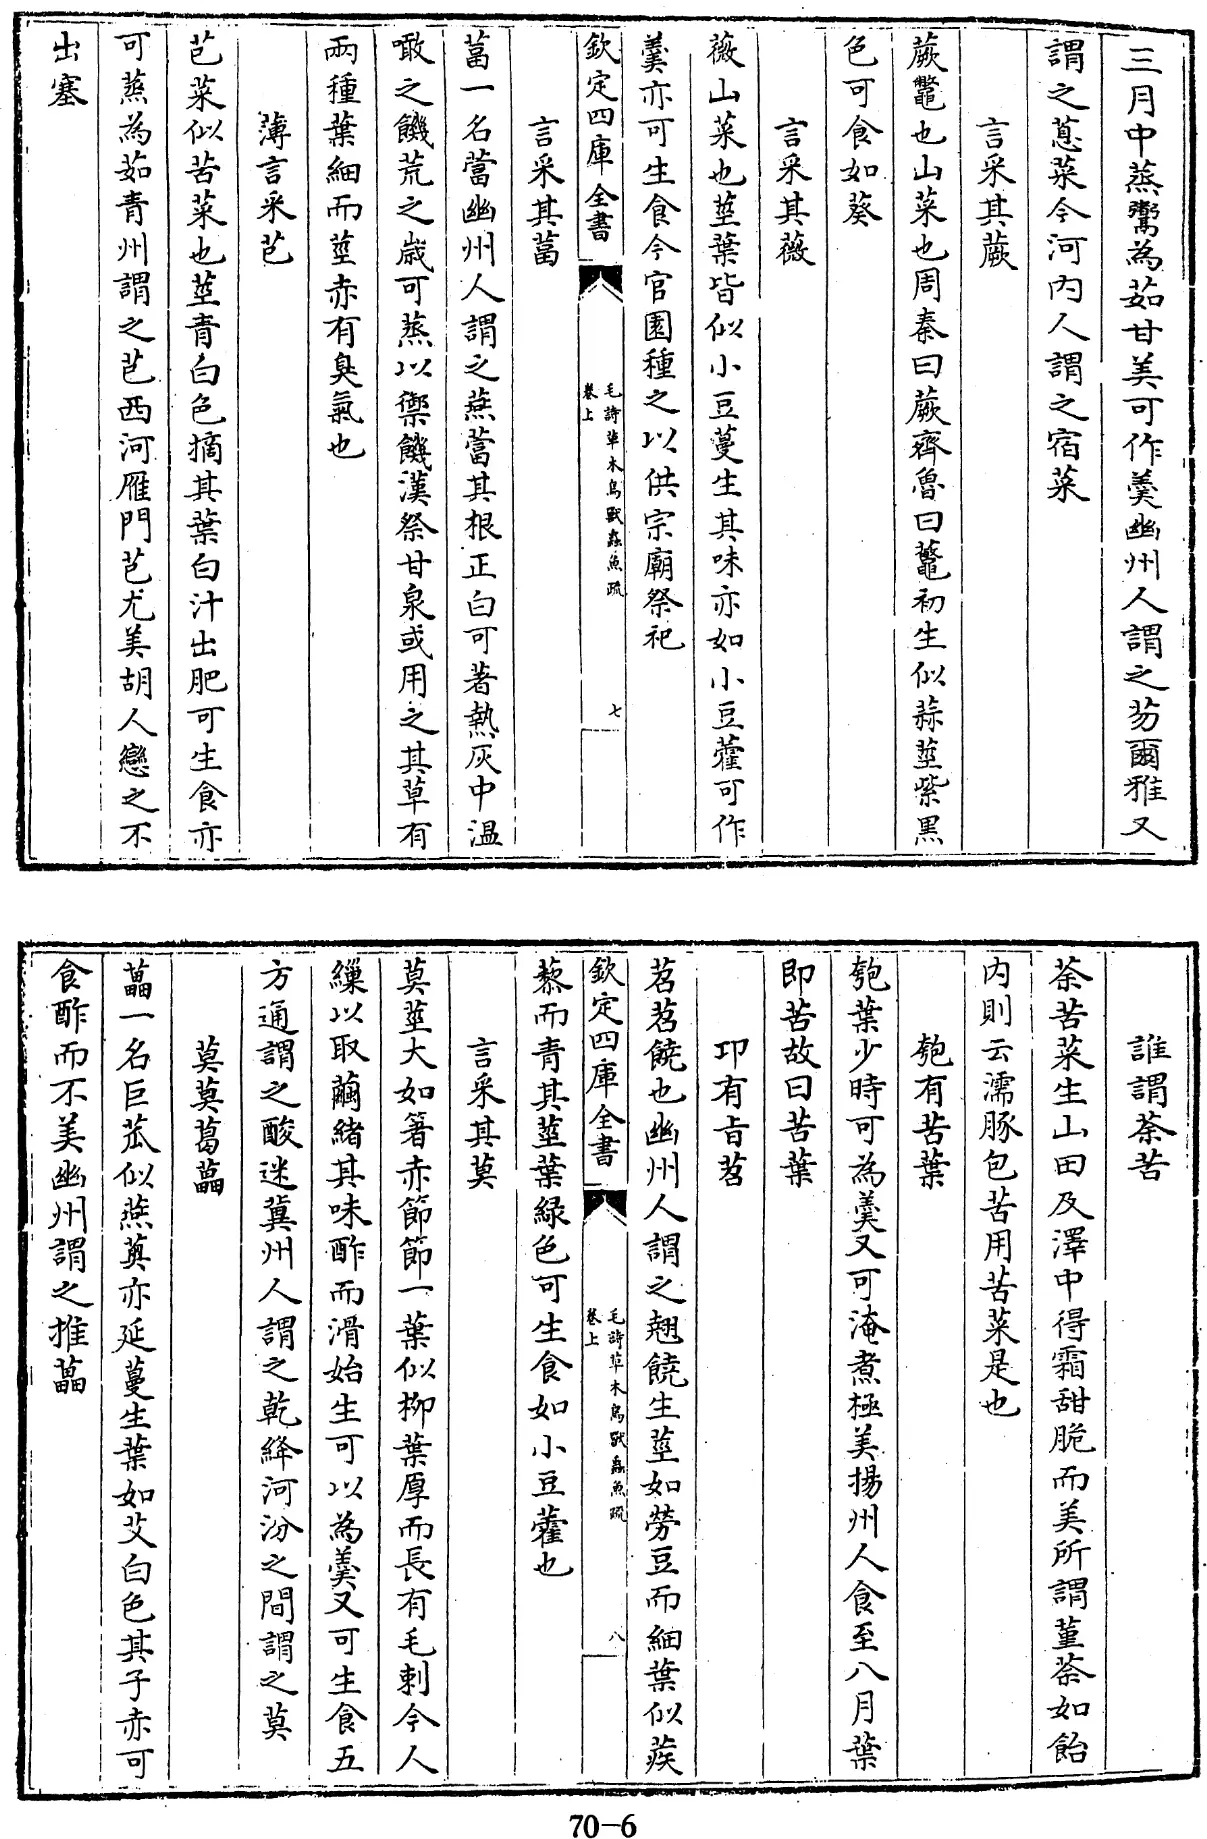 三月中蒸鬻為茹甘美可作羹幽州人謂之芴爾雅又
謂之蒠菜今河内人謂之宿菜
言采其蕨
蕨鼈也山菜也周秦曰蕨齊魯曰鼈初生似蒜莖紫黑
色可食如葵
言采其薇
薇山菜也莖葉皆似小豆蔓生其味亦如小豆藿可作
羹亦可生食今官園種之以供宗廟祭祀
欽定四庫全書
毛詩草木鳥獸蟲魚疏
卷上
七
言采其葍
葍一名䔰幽州人謂之燕䔰其根正白可著熱灰中温
噉之饑荒之歲可蒸以禦饑漢祭甘泉或用之其草有
兩種葉細而莖赤有臭氣也
薄言采芑
芑菜似苦菜也莖青白色摘其葉白汁出肥可生食亦
可蒸為茹青州謂之芑西河雁門芑尤美胡人戀之不
出塞
誰謂荼苦
荼苦菜生山田及澤中得霜甜脆而美所謂堇荼如飴
内則云濡豚包苦用苦菜是也
匏有苦葉
匏葉少時可為羹又可淹煮極美揚州人食至八月葉
即苦故曰苦葉
卭有旨苕
苕苕饒也幽州人謂之翹饒生莖如勞豆而細葉似蒺
欽定四庫全書
毛詩草木鳥獸蟲魚疏
卷上
八
藜而青其莖葉緑色可生食如小豆藿也
言采其莫
莫莖大如箸赤節節一葉似柳葉厚而長有毛刺今人
繅以取繭緒其味酢而滑始生可以為羹又可生食五
方通謂之酸迷冀州人謂之乾絳河汾之間謂之莫
莫莫葛藟
藟一名巨苽似燕薁亦延蔓生葉如艾白色其子赤可
食酢而不美幽州謂之推藟
70-6